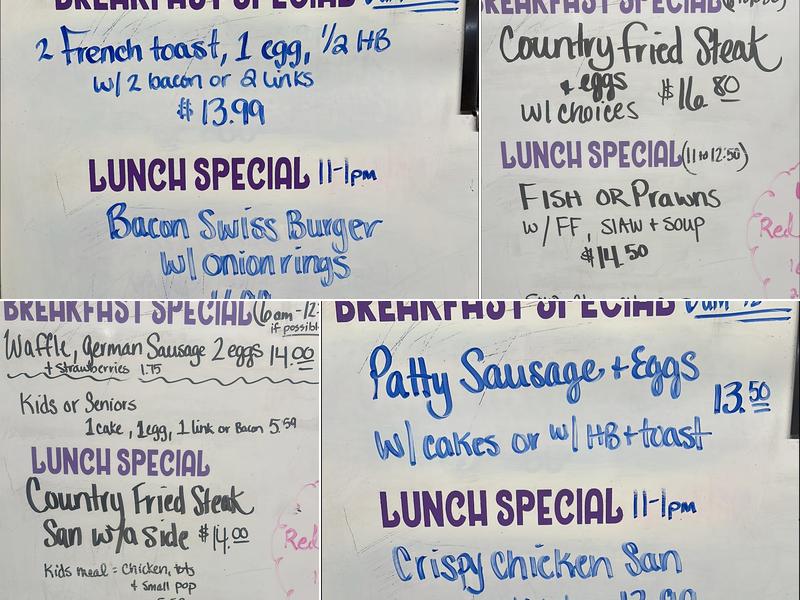 BREAKFAST SPECIAL
2 French toast, 1 egg, 1/2 HB
w/ 2 bacon or 2 links
$13.99
LUNCH SPECIAL 11-1pm
Bacon Swiss Burger
w/ onion rings
BREAKFAST SPECIAL
Country fried Steak
+ eggs
w/ choices $16.80
LUNCH SPECIAL (11 to 12:50)
FISH OR Prawns
w/ FF, SlAW + SOUP
$14.50
Red
BREAKFAST SPECIAL (6am-12:
if possibl
Waffle, German Sausage 2 eggs 14.00
+ Strawberries 1.75
Kids or Seniors
1 cake, 1 egg, 1 link or Bacon 5.59
LUNCH SPECIAL
Country Fried Steak
San w/a side $14.00
Kids meal = Chicken, tots
+ small pop
Red
BREAKFAST SPECIAL
Patty Sausage + Eggs
13.50
w/ cakes or w/ HB + toast
LUNCH SPECIAL 11-1pm
Crispy Chicken San